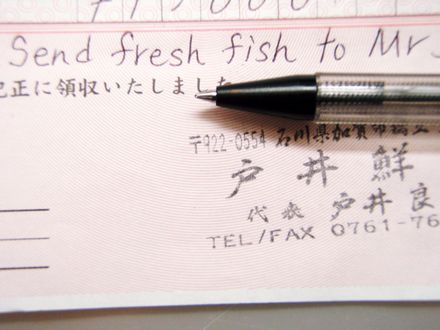 Send fresh fish to Mr
記正に領収いたしました
〒922-0554 石川県加賀市
戸井鮮
代表 戸井良
TEL/FAX 0761-76